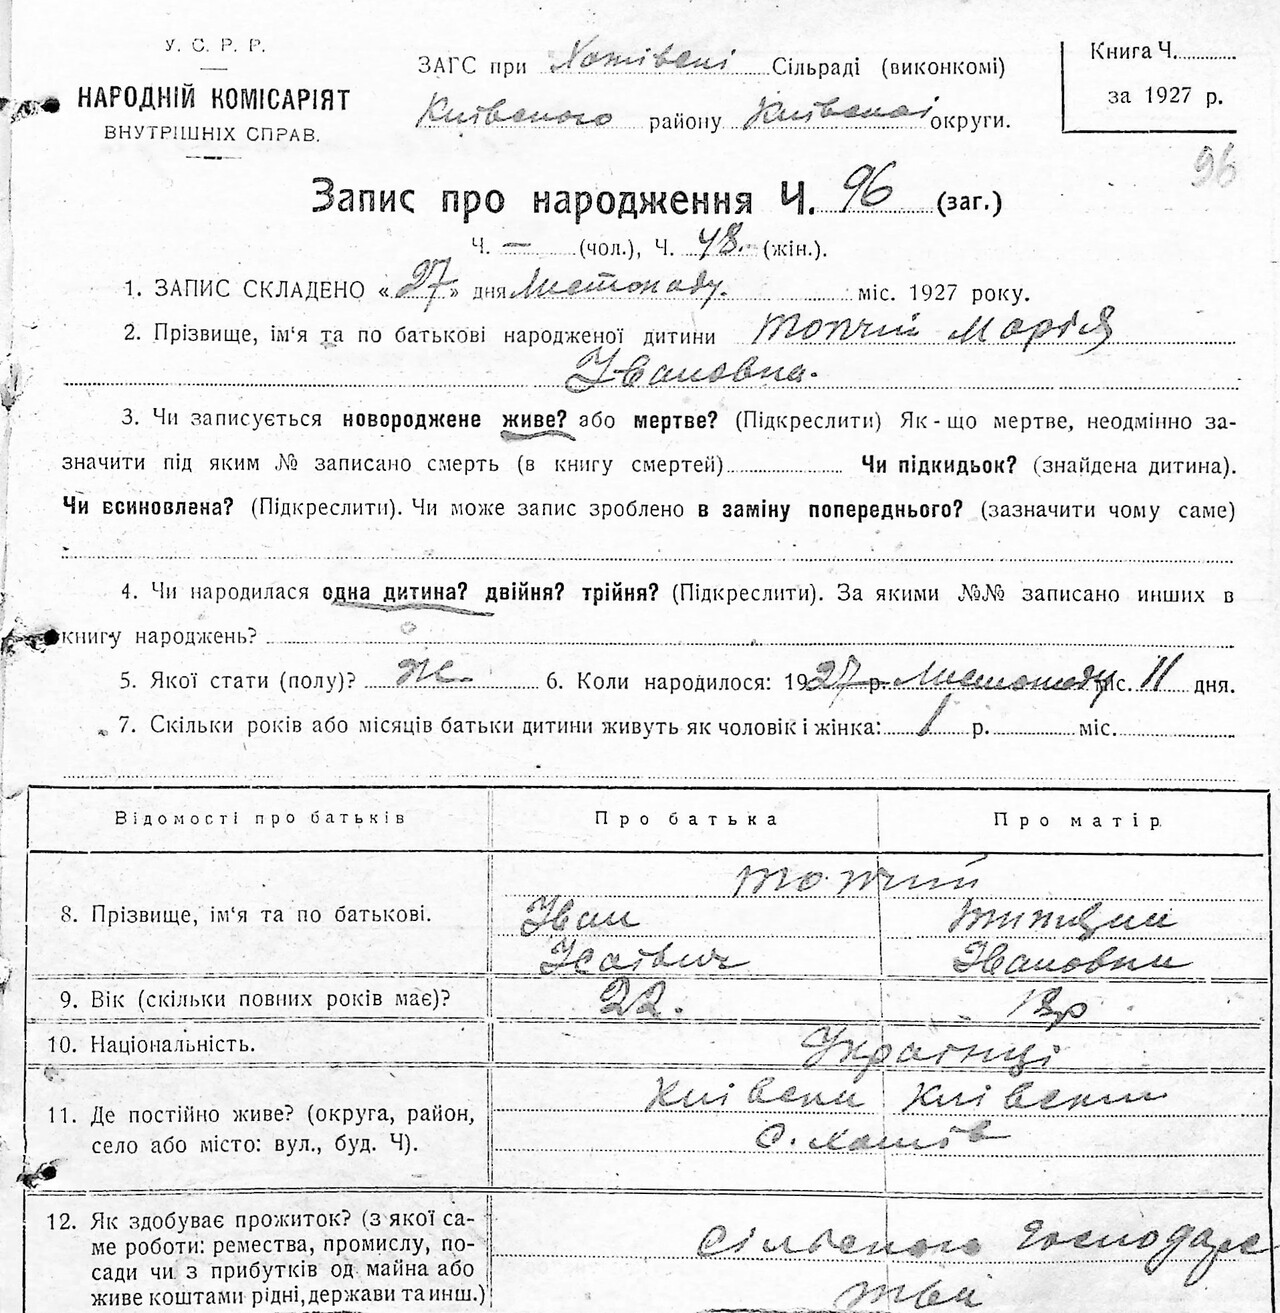 У. С. Р. Р.
НАРОДНІЙ КОМІСАРІЯТ
ВНУТРІШНІХ СПРАВ.
ЗАГС при Хотівскі Сільраді (виконкомі)
Київського району Київської округи.
Книга Ч.
за 1927 р.
96
Запис про народження Ч. 96 (заг.)
Ч. — (чол.), Ч. 48. (жін.).
1. ЗАПИС СКЛАДЕНО «27» дня Листопаду. міс. 1927 року.
2. Прізвище, ім‘я та по батькові народженої дитини Топчій Марія
Івановна.
3. Чи записується новороджене живе? або мертве? (Підкреслити) Як-що мертве, неодмінно за-
значити під яким № записано смерть (в книгу смертей) Чи підкидьок? (знайдена дитина).
Чи всиновлена? (Підкреслити). Чи може запис зроблено в заміну попереднього? (зазначити чому саме)
4. Чи народилася одна дитина? двійня? трійня? (Підкреслити). За якими №№ записано инших в
книгу народжень?
5. Якої стати (полу)? Ж. 6. Коли народилося: 1927 р. Листопаду міс. 11 дня.
7. Скільки років або місяців батьки дитини живуть як чоловік і жінка: 1 р. міс.
Відомості про батьків Про батька Про матір
Топчий
8. Прізвище, ім‘я та по батькові. Іван
Ісаівич Івановни
9. Вік (скільки повних років має)? 22.
10. Національність. Українці
11. Де постійно живе? (округа, район,
село або місто: вул., буд. Ч).
с. Хотів
12. Як здобуває прожиток? (з якої са-
ме роботи: ремества, промислу, по-
сади чи з прибутків од майна або
живе коштами рідні, держави та инш.)
Сільського Господарс
тва